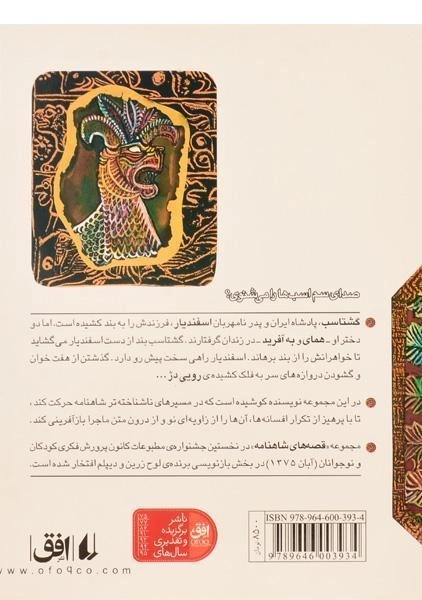 صدای سم اسب‌ها را می‌شنوی؟
گشتاسب، پادشاه ایران و پدر نامهربان اسفندیار، فرزندش را به بند کشیده است. اما دو
دختر او ـ همای و به آفرید ـ در زندان گرفتارند. گشتاسب بند از دست اسفندیار می‌گشاید
تا خواهرانش را از بند برهاند. اسفندیار راهی سخت پیش رو دارد. گذشتن از هفت خوان
و گشودن دروازه‌های سر به فلک کشیده‌ی رویی دژ...
در این مجموعه نویسنده کوشیده است که در مسیرهای ناشناخته‌تر شاهنامه حرکت کند،
تا با پرهیز از تکرار افسانه‌ها، آن‌ها را از زاویه‌ای نو و از درون متن ماجرا بازآفرینی کند.
مجموعه‌ «قصه‌های شاهنامه» در نخستین جشنواره‌ی مطبوعات کانون پرورش فکری کودکان
و نوجوانان (آبان ۱۳۷۵) در بخش بازنویسی برنده‌ی لوح زرین و دیپلم افتخار شده است.
ISBN 978-964-600-393-4
9789646003934
۸۵۰۰ تومان
ناشر
برگزیده
و تقدیری
سال‌های
افق
OFOQ
افق
www.ofoqco.com